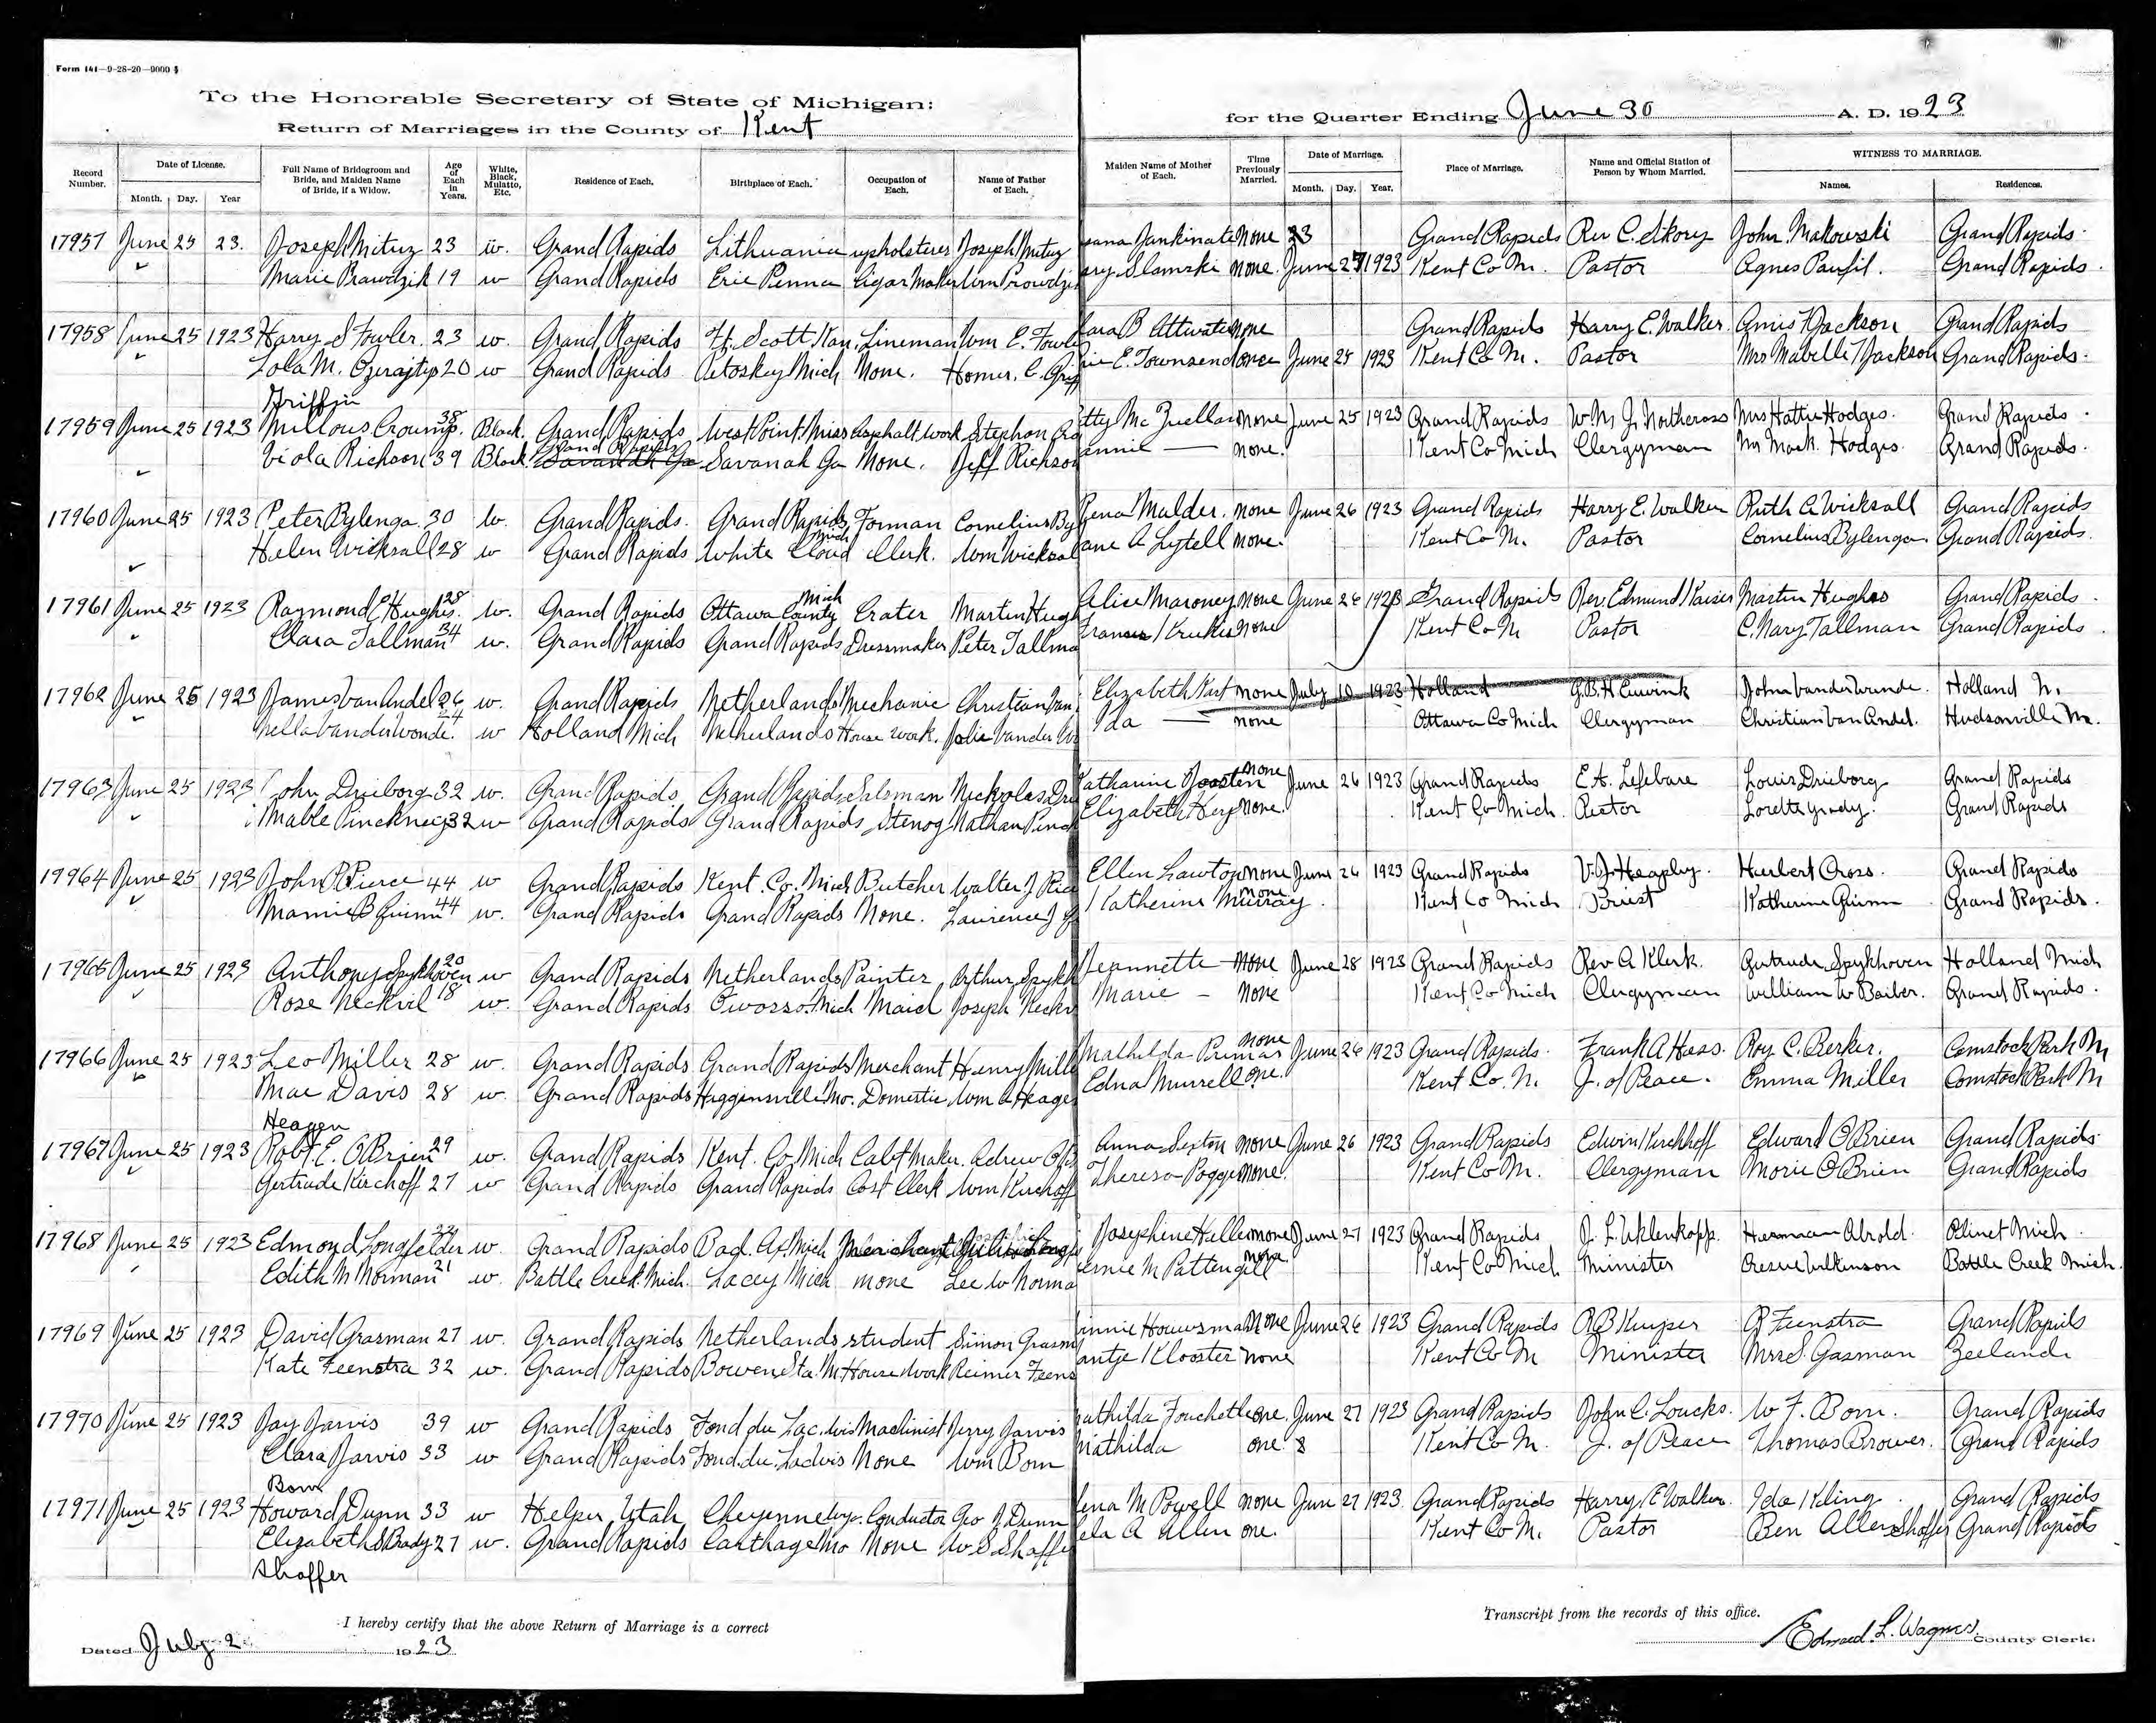 Form 141—9-28-20—9000 §
To the Honorable Secretary of State of Michigan:
Return of Marriages in the County of Kent
for the Quarter Ending June 30 A. D. 1923
Record Number.
Date of License.
Month. Day. Year
Full Name of Bridegroom and Bride, and Maiden Name of Bride, if a Widow.
Age of Each in Years.
White, Black, Mulatto, Etc.
Residence of Each.
Birthplace of Each.
Occupation of Each.
Name of Father of Each.
Maiden Name of Mother of Each.
Time Previously Married.
Date of Marriage.
Month. Day. Year.
Place of Marriage.
Name and Official Station of Person by Whom Married.
WITNESS TO MARRIAGE.
Names. Residences.
17957 June 25 23. Joseph Mituz 23 w. Grand Rapids Lithuania upholsterer Joseph Mituz none 23 Grand Rapids Rev C. John Makowski Grand Rapids
Marie Prawdzik 19 w Grand Rapids Erie Penna Cigar Maker Wm none June 27 1923 Kent Co M. Pastor Agnes Paufil. Grand Rapids.
17958 June 25 1923 Harry S Fowler. 23 w. Grand Rapids Ft. Scott Kan. Lineman Wm E. Fowle B Attwate none Grand Rapids Harry E. Walker. Jackson Grand Rapids
Lola M. 20 w Grand Rapids Petoskey Mich None. Homer. C. E. Townsend once June 25 1923 Kent Co M. Pastor Mrs Mabelle Jackson Grand Rapids.
Griffin
17959 June 25 1923 38 Black. Grand Rapids West Point. Miss Asphalt work Stephen none June 25 1923 Grand Rapids W. M. J. Northcross Mrs Hattie Hodges. Grand Rapids.
Viola Richson 39 Black Grand Rapids Savanah Ga Savanah Ga None. Jeff Richson annie — none. Kent Co Mich Clergyman Mr Mack. Hodges. Grand Rapids.
17960 June 25 1923 Peter Bylenga. 30 w. Grand Rapids. Grand Rapids Forman Cornelius By Rena Mulder. none June 26 1923 Grand Rapids Harry E. Walker Ruth A Wicksall Grand Rapids
Helen Wicksall 28 w Grand Rapids White Cloud Mich Clerk. Wm Wicksal ane A Lytell none. Kent Co M. Pastor Cornelius Bylenga. Grand Rapids.
17961 June 25 1923 Raymond Hughes. 28 w. Grand Rapids Ottawa County Mich Crater Martin Hugh Alice Maroney none June 26 1923 Grand Rapids Rev. Edmund Kaiser Martin Hughes Grand Rapids.
Clara Tallman 34 w. Grand Rapids Grand Rapids Dressmaker Peter Tallma none Kent Co M Pastor C. Mary Tallman Grand Rapids.
17962 June 25 1923 James Van Andel 26 w. Grand Rapids Netherlands Mechanic Christian Van Elizabeth none July 10 1923 Holland John Vander Wende. Holland M.
Nella Vander Wonde. 24 w Holland Mich Netherlands House work. Vander Ida — none Ottawa Co Mich Clergyman Christian Van Andel. Hudsonville M.
17963 June 25 1923 John Drieborg 32 w. Grand Rapids Grand Rapids Salsman Nickolas Dri Katharine none June 26 1923 Grand Rapids E. A. Lefebvre Louis Drieborg Grand Rapids
Mable Pinckney 32 w Grand Rapids Grand Rapids Stenog Nathan Pinck Elizabeth none. Kent Co Mich. Rector Loretta Grady. Grand Rapids
17964 June 25 1923 John P Pierce 44 w Grand Rapids Kent. Co. Mich Butcher Walter J. Pier Ellen Lawton none June 26 1923 Grand Rapids V. J. Heaphy. Herbert Cross. Grand Rapids
Mamie B Guinn 44 w. Grand Rapids Grand Rapids None. Laurence J Katherine Murray. none Kent Co Mich Priest Katherine Guinn Grand Rapids.
17965 June 25 1923 Anthony Spykhoven 20 w Grand Rapids Netherlands Painter Arthur Spykh Jeannette — none June 28 1923 Grand Rapids Rev A Klerk. Gertrude Spykhoven Holland Mich
Rose Neckvil 18 w. Grand Rapids Owosso. Mich Maid Joseph Neckv Marie — none Kent Co Mich Clergyman William W Baiber. Grand Rapids.
17966 June 25 1923 Leo Miller 28 w. Grand Rapids Grand Rapids Merchant Henry Mille Mathilda none June 26 1923 Grand Rapids. Frank A Hess. Roy C. Berker. Comstock Park M
Mae Davis 28 w. Grand Rapids Higginsville Mo. Domestic Wm A Heage Edna Murrell one. Kent Co. M. J. of Peace. Emma Miller Comstock Park M
Heagen
17967 June 25 1923 Robt. E. O'Brien 29 w. Grand Rapids Kent. Co Mich Cabt Maker. Adrew O'B Anna Sexton none June 26 1923 Grand Rapids Edwin Kirchhoff Edward O'Brien Grand Rapids
Gertrude Kirchoff 27 w Grand Rapids Grand Rapids Cost Clerk Wm Kirchoff Theresa none. Kent Co M. Clergyman Morie O'Brien Grand Rapids
17968 June 25 1923 Edmond Longfelder 22 w Grand Rapids Bad. Ax Mich Merchant Josephine none June 27 1923 Grand Rapids J. L. Herman Mich.
Edith M Norman 21 w. Battle Creek. Mich. Lacey Mich none Lee W Norma M Pattengill none Kent Co Mich Minister Wilkinson Battle Creek Mich.
17969 June 25 1923 David Grasman 27 w. Grand Rapids Netherlands student Simon Grasm innie Houwsma none June 26 1923 Grand Rapids R B Kuiper R Feenstra Grand Rapids
Kate Feenstra 32 w. Grand Rapids Bowen Sta. M House Work Reimer Feens antje Klooster none Kent Co M Minister Mrs S. Gasman Zeeland.
17970 June 25 1923 Jay Jarvis 39 w Grand Rapids Fond du Lac. Wis Machinist Jerry Jarvis athilda one. June 27 1923 Grand Rapids John C. Loucks. W F. Born. Grand Rapids
Clara Jarvis 33 w Grand Rapids Fond. du. Lac Wis None Wm Born Mathilda one. 8 Kent Co M. J. of Peace Thomas Brower. Grand Rapids
Born
17971 June 25 1923 Howard Dunn 33 w Helper Utah Cheyenne Wyo. Conductor Geo J. Dunn lena M Powell none June 27 1923. Grand Rapids Harry E Walker. Ida Kling. Grand Rapids
Elizabeth S Brady 27 w. Grand Rapids Carthage Mo None W S Shaffe A Allen one. Kent Co M. Pastor Ben Allen Shaffer Grand Rapids
Shaffer
I hereby certify that the above Return of Marriage is a correct
Transcript from the records of this office.
Dated July 2 1923
Edward. L. Wagner. County Clerk.